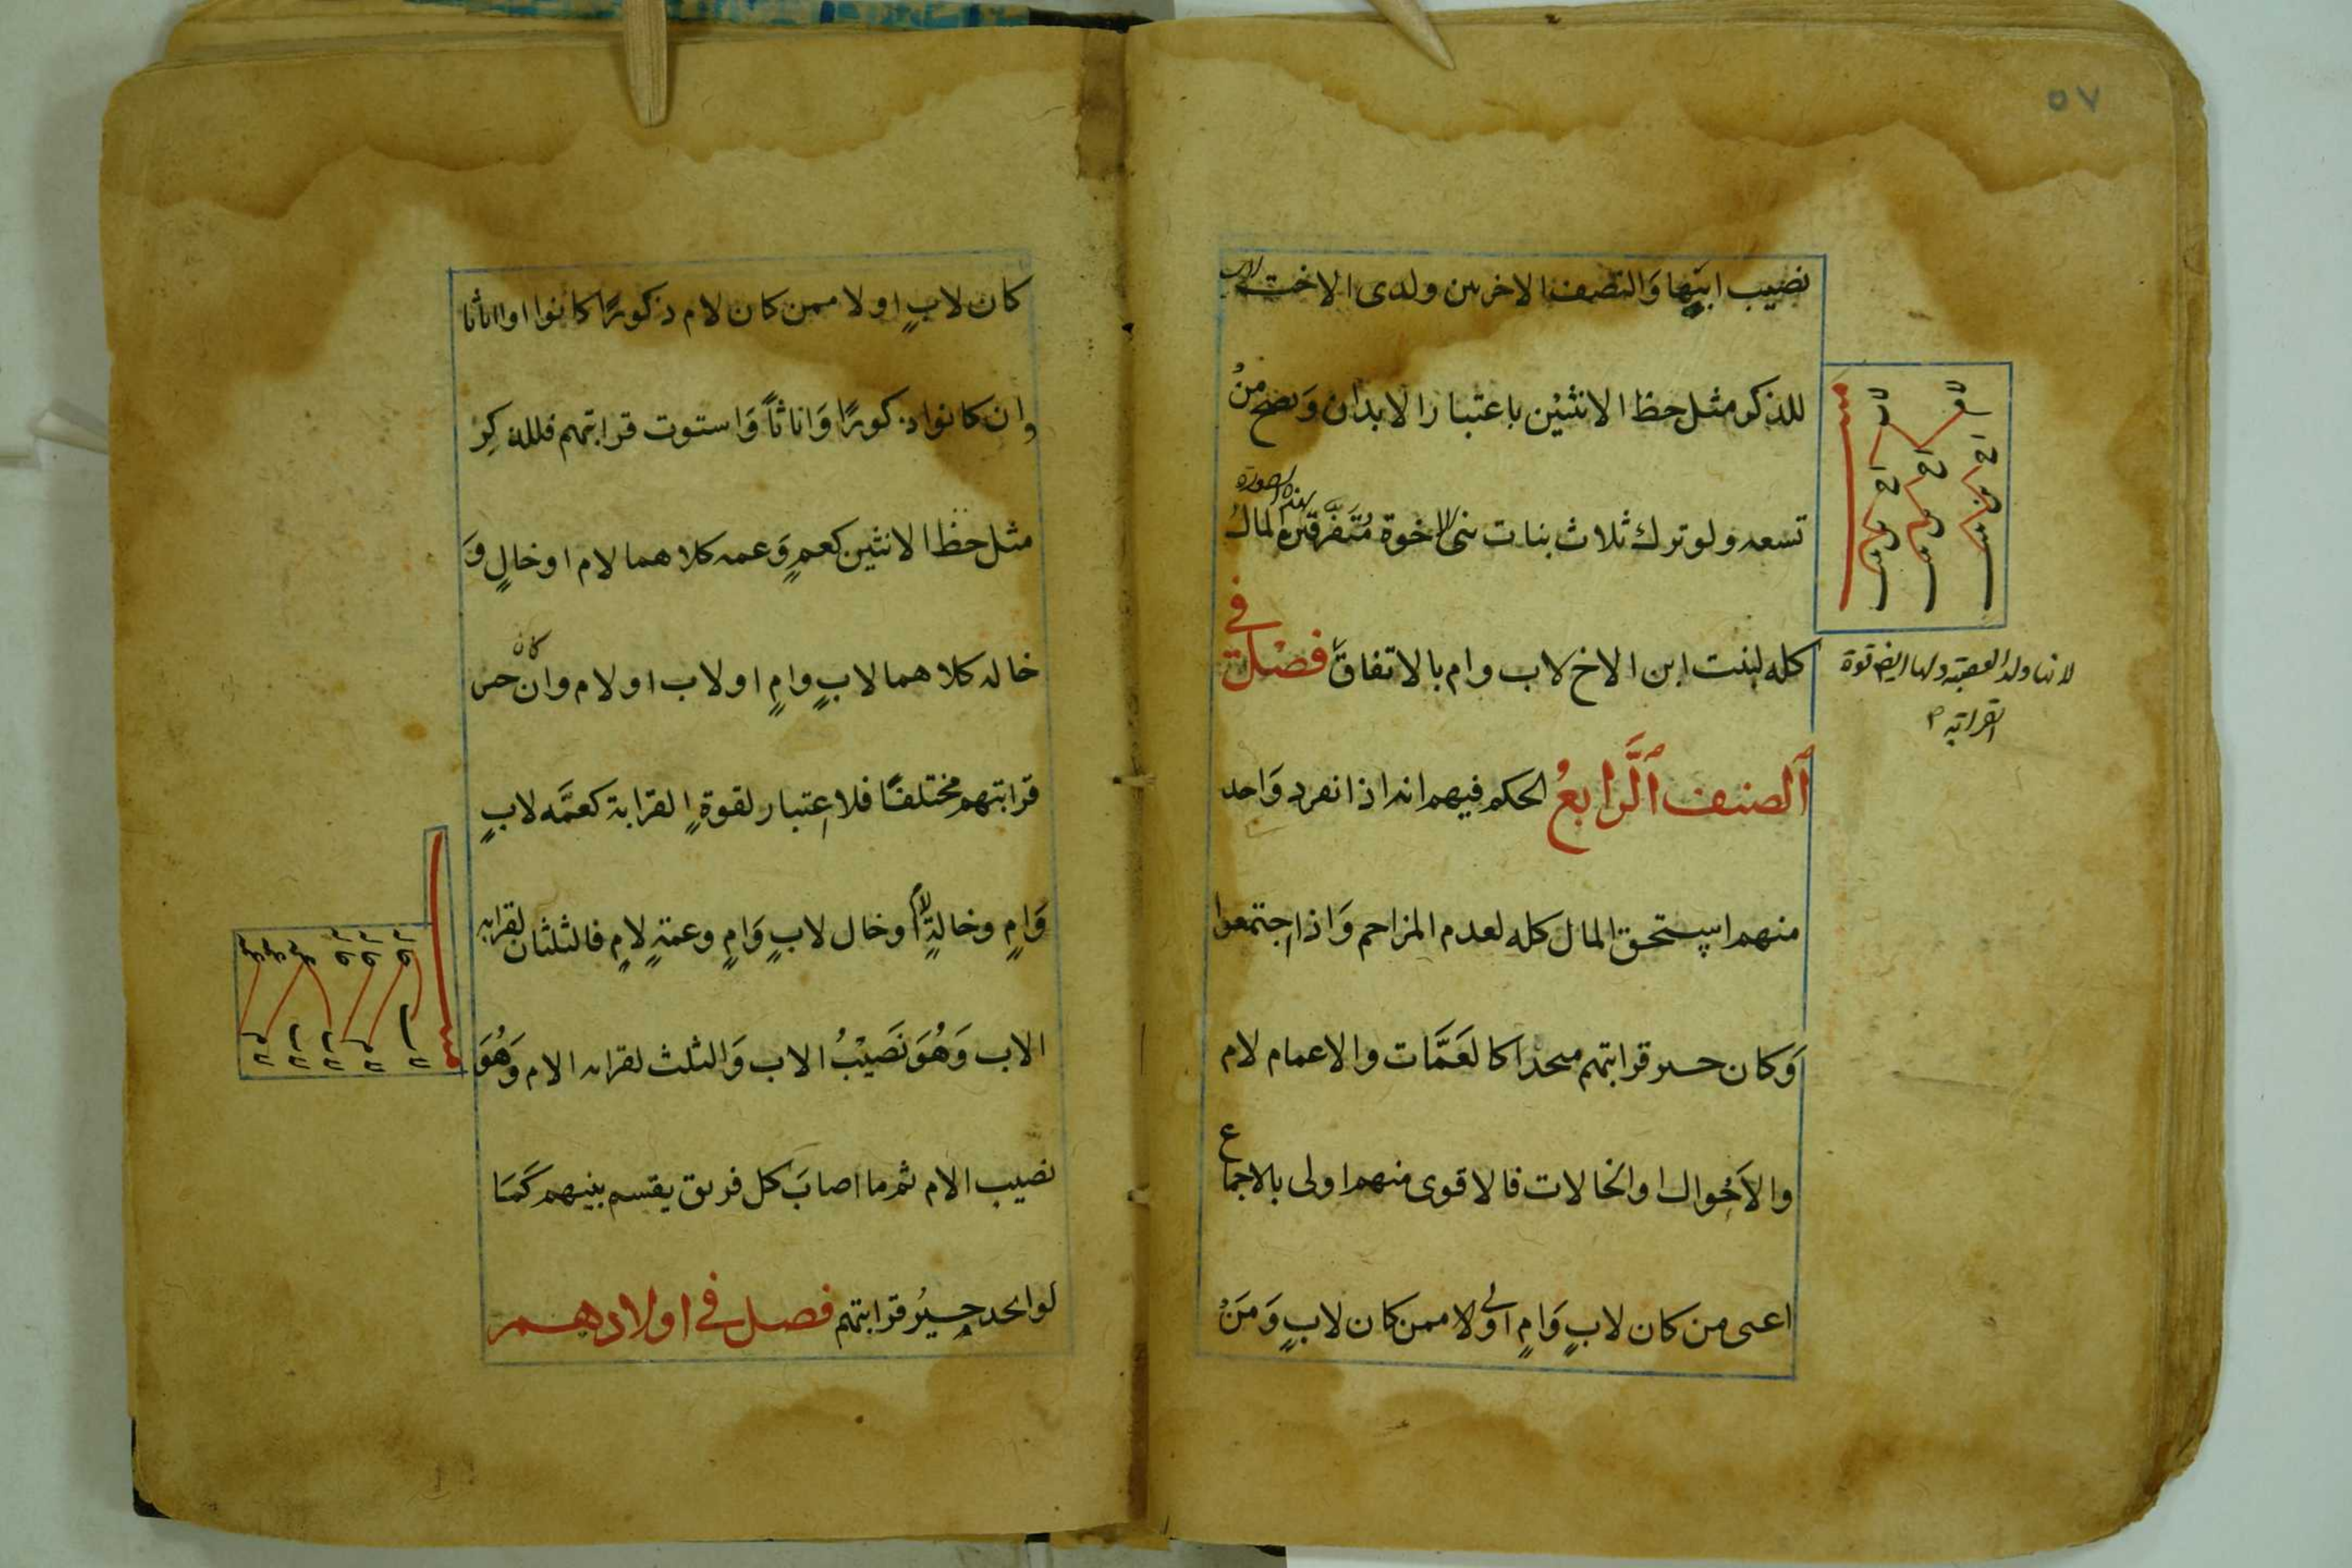 ٥٧
نصيب ابيها والنصف الاخر بين ولدى الاخت لاب
للذكر مثل حظ الانثيين باعتبار الابدان وَتصح منْ
تسعه ولو ترك ثلاث بنات بنى الاخوة مُتَفرقين بهذه الصورة المالُ
كله لبنت ابن الاخ لاب وام بالاتفاق فصْل في
اَلصنف اَلَّرابعُ الحكم فيهم انه اذا انفرد وَاحد
منهم استحق المال كله لعدم المزاحم وَاذا اجتمعوا
وَكان حيز قرابتهم متحدا كالعَمَّات والاعمام لام
والاَخوال او الخالات فالاقوى منهم اولى بالاجماع
اعنى من كان لابٍ وَامٍ اولى ممن كان لابٍ وَمَنْ
لانها ولد العصبة ولها ايضا قوة
القرابة
كان لابٍ اولا ممن كان لام ذكورًا كانوا او اناثا
وان كانوا ذكورًا وَاناثاً وَاستوت قرابتهم فللذكرِ
مثل حظ الانثيين كعمٍ وَعمه كلاهما لام او خالٍ وَ
خاله كلاهما لابٍ وامٍ او لاب او لام وان كان حيز
قرابتهم مختلفًا فلا اعتبار لقوةِ القرابة كعمَّه لابٍ
وَامٍ وخالةٍ لام او خال لابٍ وَامٍ وعمةٍ لامٍ فالثلثان لقرابه
الاب وَهُوَ نَصَيْبُ الاب وَالثلث لقرابه الام وَهُوَ
نصيب الام ثم ما اصابَ كل فريق يقسم بينهم كَمَا
لو اتحد حيزُ قرابتهم فصل في اولادهم